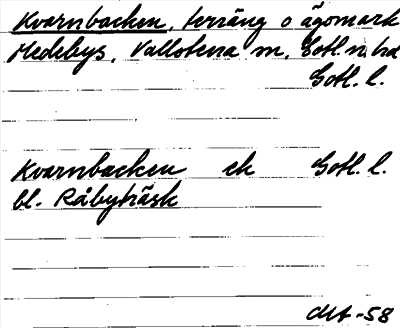 Kvarnbacken, terräng o ägomark
Medebys, Vallstena sn, Gotl. n. hd
Gotl. l.
Kvarnbacken ek Gotl. l.
bl. Råbyträsk
-58